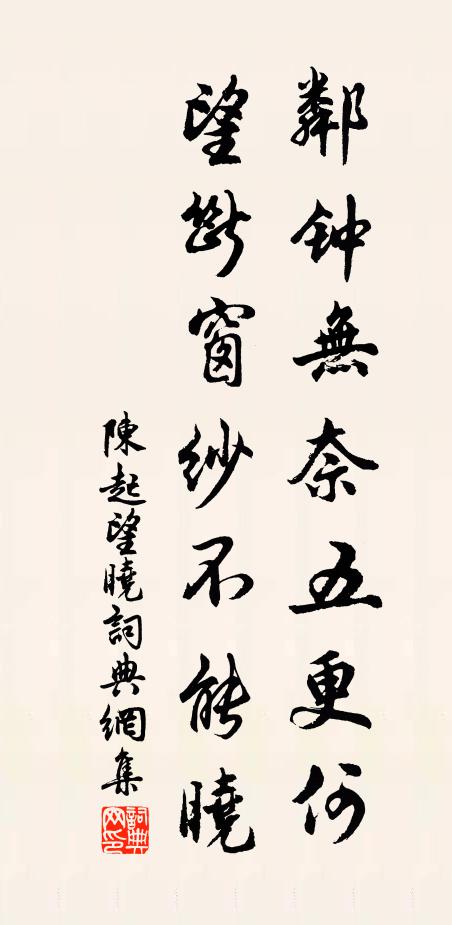 鄰钟無奈五更何
望斷窗紗不能曉
陳起望曉詞典網集
詞典网印